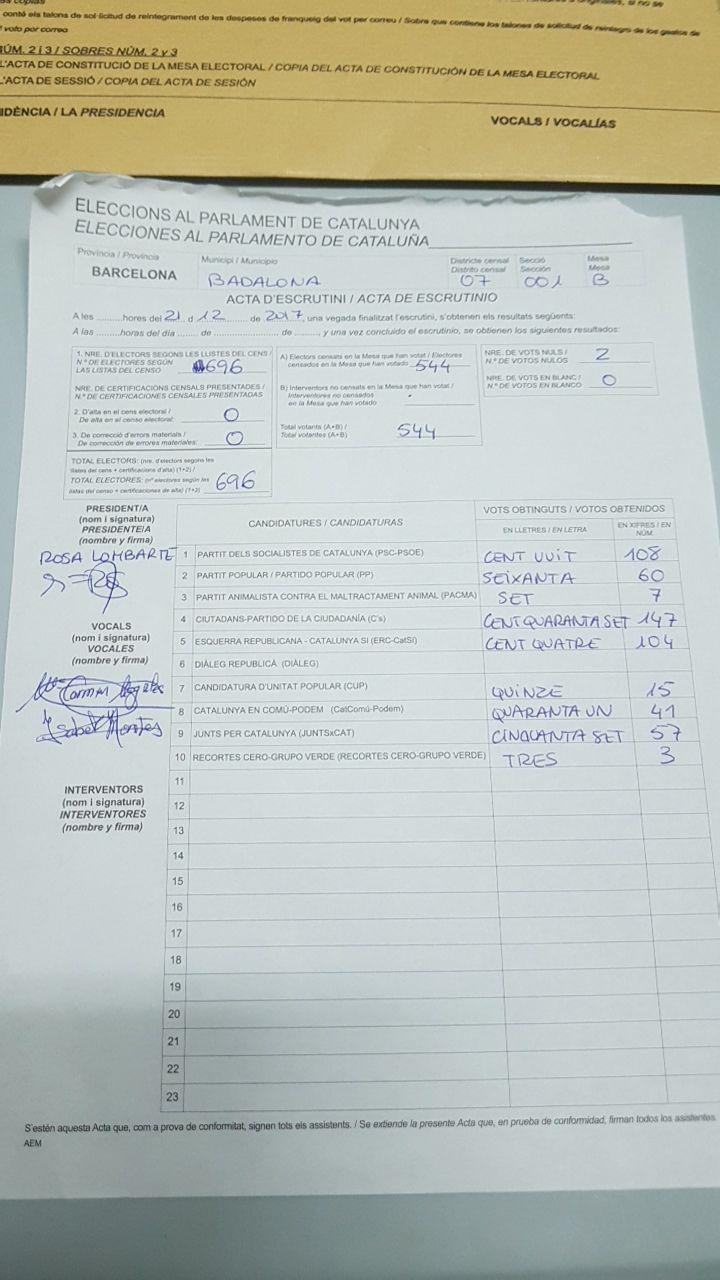 conté els talons de sol·licitud de reintegrament de les despeses de franqueig del vot per correu / Sobre que contiene los talones de solicitud de reintegro de los gastos de
voto por correo
NÚM. 2 i 3 / SOBRES NÚM. 2 y 3
L'ACTA DE CONSTITUCIÓ DE LA MESA ELECTORAL / COPIA DEL ACTA DE CONSTITUCIÓN DE LA MESA ELECTORAL
L'ACTA DE SESSIÓ / COPIA DEL ACTA DE SESIÓN
IDÈNCIA / LA PRESIDENCIA
VOCALS / VOCALÍAS
ELECCIONS AL PARLAMENT DE CATALUNYA
ELECCIONES AL PARLAMENTO DE CATALUÑA
Província / Provincia Municipi / Municipio Districte censal Secció Mesa
Distrito censal Sección Mesa
BARCELONA BADALONA 07 001 B
ACTA D'ESCRUTINI / ACTA DE ESCRUTINIO
A les ......... hores del 21 d 12 de 2017, una vegada finalitzat l'escrutini, s'obtenen els resultats següents:
A las ......... horas del día ....... de ........................ de ......., y una vez concluido el escrutinio, se obtienen los siguientes resultados:
1. NRE. D'ELECTORS SEGONS LES LLISTES DEL CENS /
N.º DE ELECTORES SEGÚN
LAS LISTAS DEL CENSO 696
NRE. DE CERTIFICACIONS CENSALS PRESENTADES /
N.º DE CERTIFICACIONES CENSALES PRESENTADAS
2. D'alta en el cens electoral /
De alta en el censo electoral: 0
3. De correcció d'errors materials /
De corrección de errores materiales: 0
TOTAL ELECTORS: (nre. d'electors segons les
llistes del cens + certificacions d'alta) (1+2) /
TOTAL ELECTORES: (nº electores según las
listas del censo + certificaciones de alta) (1+2) 696
A) Electors censats en la Mesa que han votat / Electores
censados en la Mesa que han votado 544
B) Interventors no censats en la Mesa que han votat /
Interventores no censados
en la Mesa que han votado
Total votants (A+B) /
Total votantes (A+B) 544
NRE. DE VOTS NULS /
N.º DE VOTOS NULOS 2
NRE. DE VOTS EN BLANC /
N.º DE VOTOS EN BLANCO 0
PRESIDENT/A
(nom i signatura)
PRESIDENTE/A
(nombre y firma)
ROSA LOMBARTE
VOCALS
(nom i signatura)
VOCALES
(nombre y firma)
Carmen
Isabel Montes
INTERVENTORS
(nom i signatura)
INTERVENTORES
(nombre y firma)
CANDIDATURES / CANDIDATURAS
VOTS OBTINGUTS / VOTOS OBTENIDOS
EN LLETRES / EN LETRA
EN XIFRES / EN
NÚM.
1 PARTIT DELS SOCIALISTES DE CATALUNYA (PSC-PSOE) CENT VUIT 108
2 PARTIT POPULAR / PARTIDO POPULAR (PP) SEIXANTA 60
3 PARTIT ANIMALISTA CONTRA EL MALTRACTAMENT ANIMAL (PACMA) SET 7
4 CIUTADANS-PARTIDO DE LA CIUDADANÍA (C's) CENT QUARANTA SET 147
5 ESQUERRA REPUBLICANA - CATALUNYA SÍ (ERC-CatSí) CENT QUATRE 104
6 DIÀLEG REPUBLICÀ (DIÀLEG)
7 CANDIDATURA D'UNITAT POPULAR (CUP) QUINZE 15
8 CATALUNYA EN COMÚ-PODEM (CatComú-Podem) QUARANTA UN 41
9 JUNTS PER CATALUNYA (JUNTSxCAT) CINQUANTA SET 57
10 RECORTES CERO-GRUPO VERDE (RECORTES CERO-GRUPO VERDE) TRES 3
11
12
13
14
15
16
17
18
19
20
21
22
23
S'estén aquesta Acta que, com a prova de conformitat, signen tots els assistents. / Se extiende la presente Acta que, en prueba de conformidad, firman todos los asistentes.
AEM